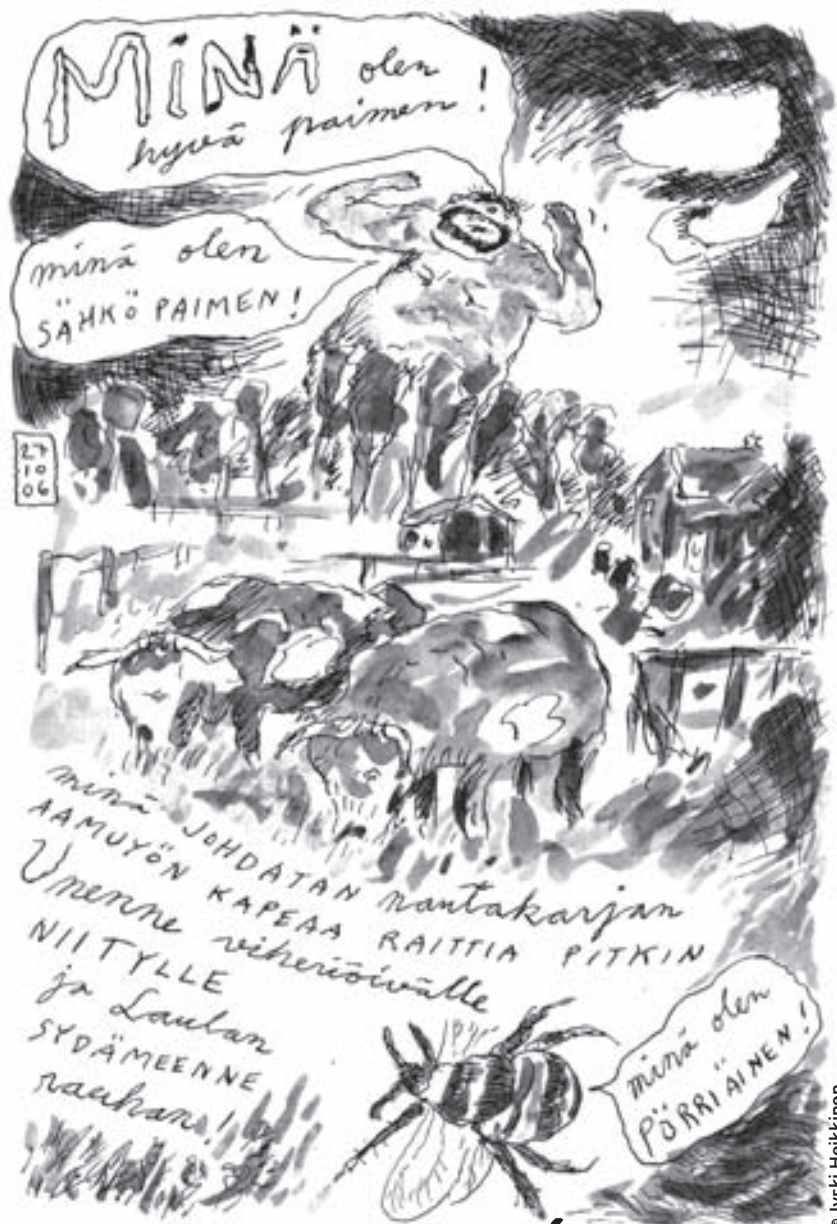 MINÄ olen
hyvä paimen!
minä olen
SÄHKÖPAIMEN!
27
10
06
minä JOHDATAN nautakarjan
AAMUYÖN KAPEAA RAITTIA PITKIN
Unenne viheriöivälle
NIITYLLE
ja Laulan
SYDÄMEENNE
rauhan!
minä olen
PÖRRIÄINEN!
Heikkinen